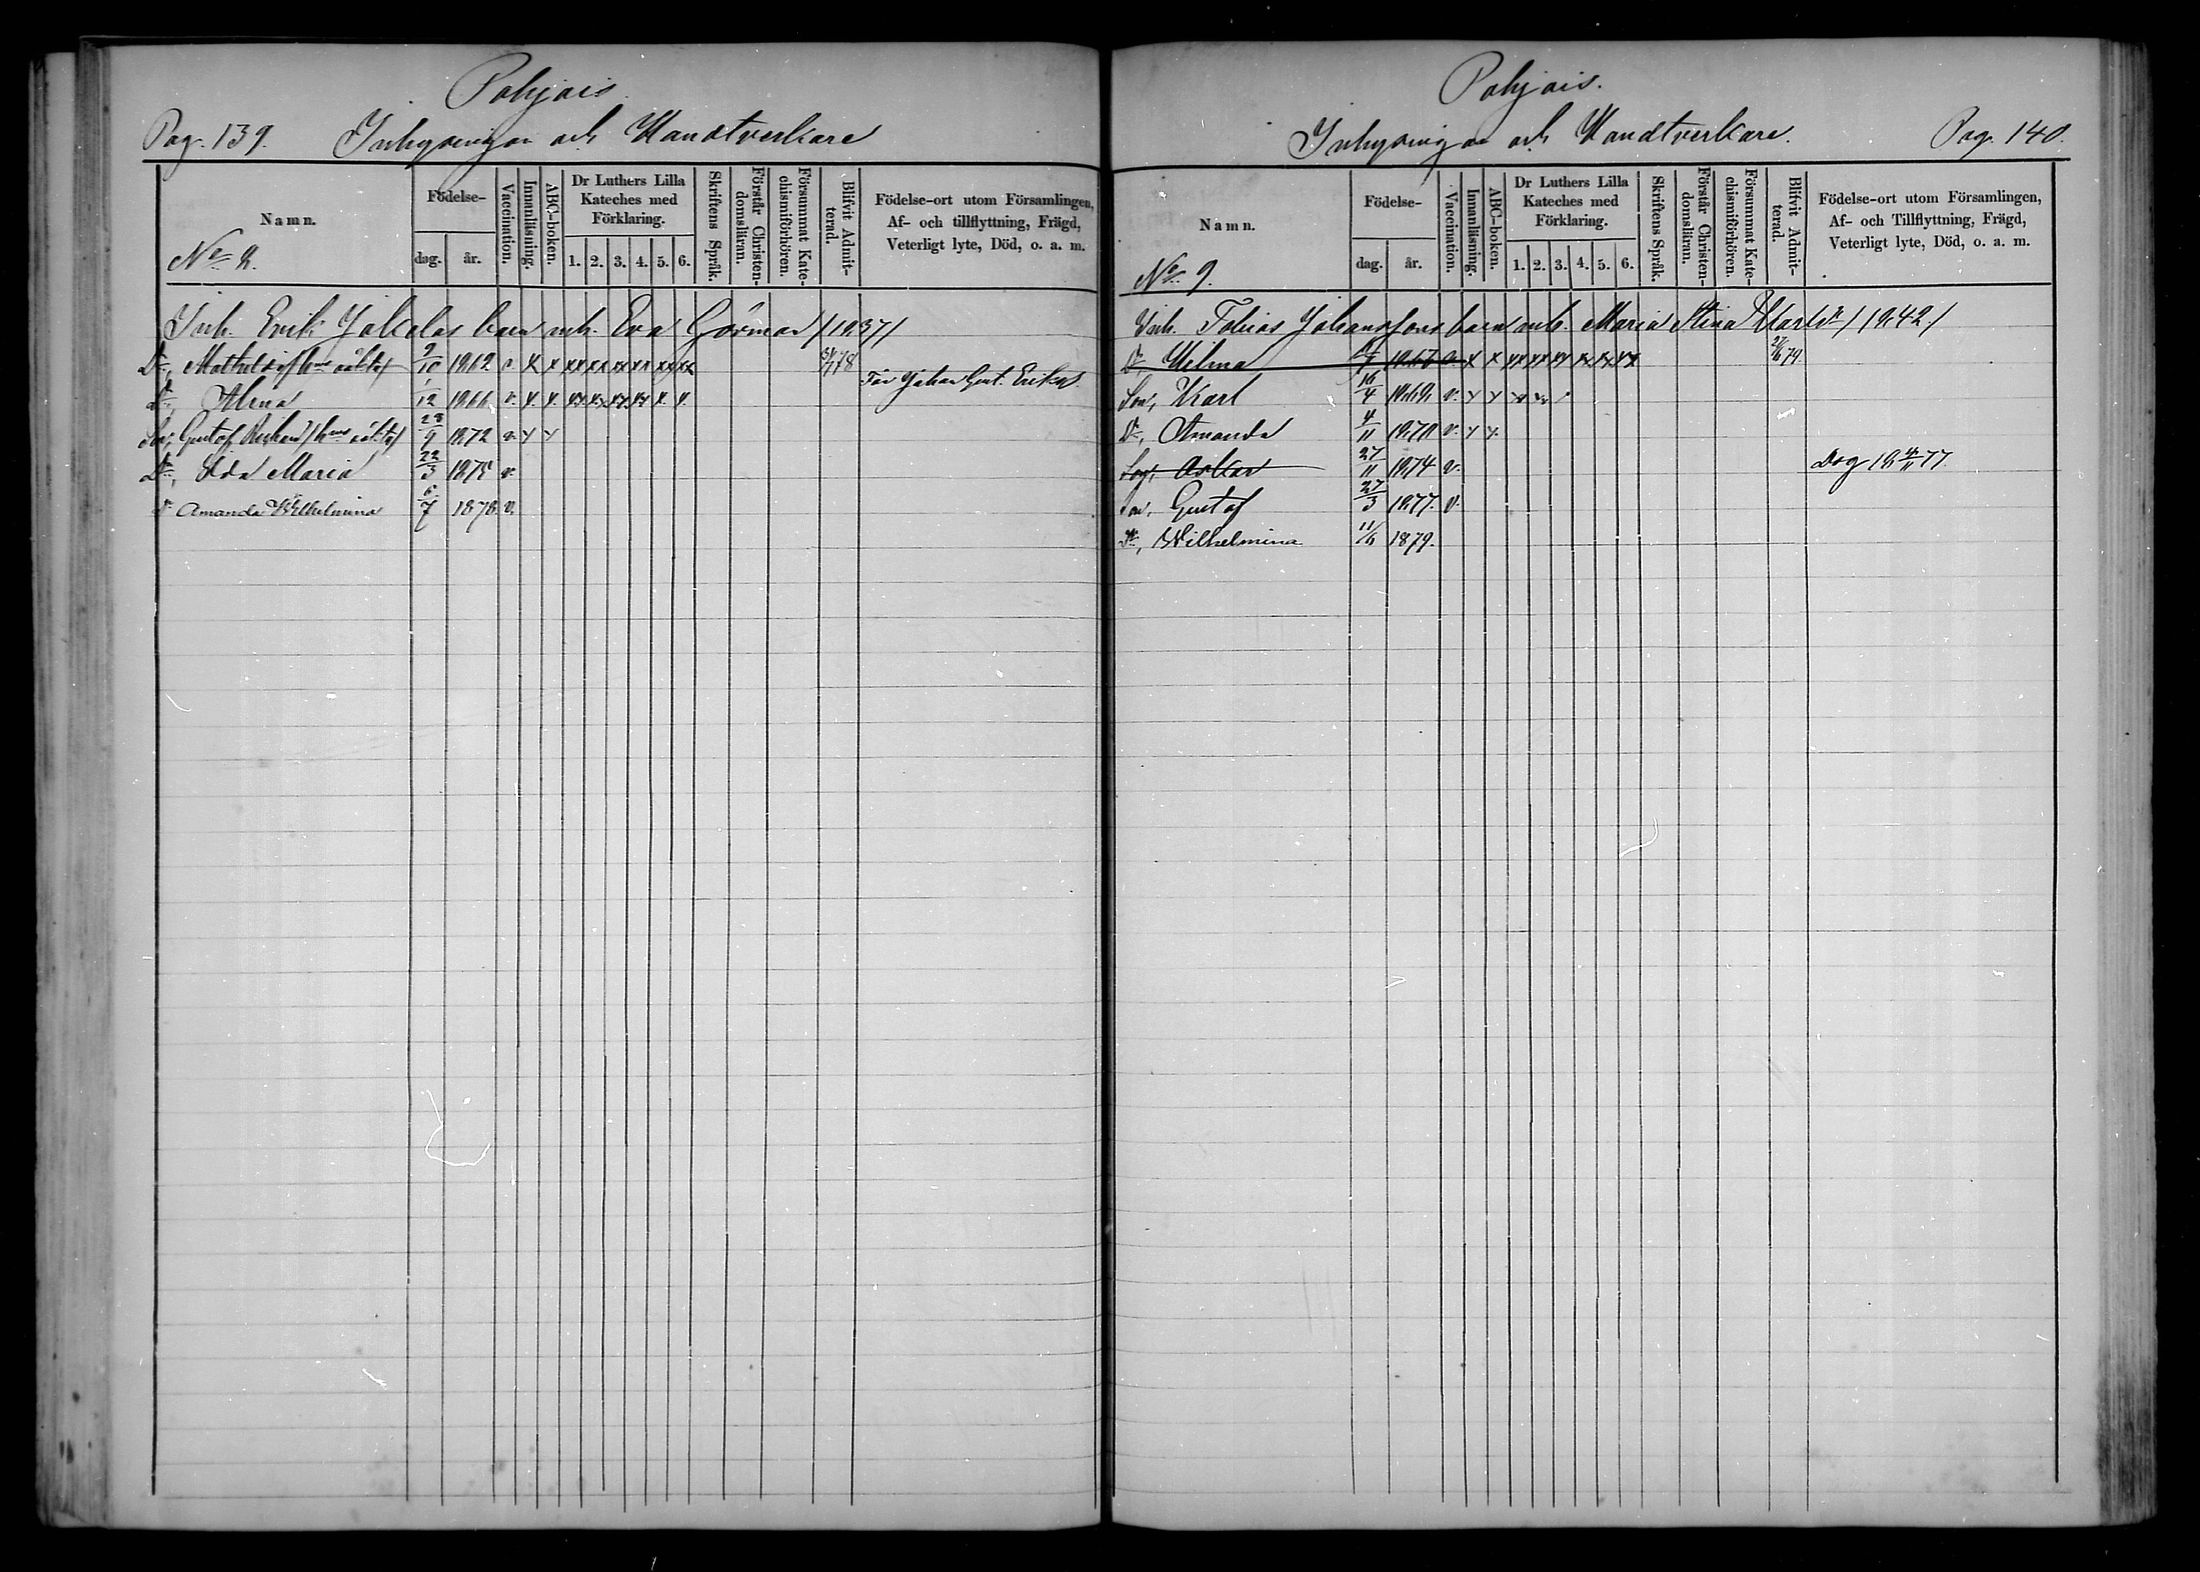 Pohjois
Pag. 139. Inhysingar och Handtverkare
Namn.
No 8.
Födelse-
dag.
år.
Vaccination.
Innanläsning.
ABC-boken.
Dr Luthers Lilla
Kateches med
Förklaring.
1. 2. 3. 4. 5. 6.
Skriftens Språk.
Förstår Christen-
domsläran.
Försummat Kate-
chismiförhören.
Blifvit Admit-
terad.
Födelse-ort utom Församlingen,
Af- och tillflyttning, Frägd,
Veterligt lyte, Död, o. a. m.
Inh. Erik Jakelas barn mh. Eva /1837/
Dr, 9/10 1862 v. x x xx xx xx xx xx xx 78 Far Johan Gust. Eriks.
Dr, Alma 1/12 1866 v. x. x. xx xx xx xx x. x.
Son, Gustaf 28/9 1872 v. x x
Dr, Ida Maria 22/3 1875 v.
Dr Amanda Wilhelmina 6/7 1878. v.
Pohjois.
Inhysingar och Handtverkare. Pag. 140.
Namn.
No 9.
Födelse-
dag.
år.
Vaccination.
Innanläsning.
ABC-boken.
Dr Luthers Lilla
Kateches med
Förklaring.
1. 2. 3. 4. 5. 6.
Skriftens Språk.
Förstår Christen-
domsläran.
Försummat Kate-
chismiförhören.
Blifvit Admit-
terad.
Födelse-ort utom Församlingen,
Af- och Tillflyttning, Frägd,
Veterligt lyte, Död, o. a. m.
Inh. Tobias Johanssons barn mh. Maria Stina Karlsdr /1842./
Dr Wilma v. x x xx xx xx xx xx 79.
Son, Karl 16/4 1869. v. x x x x
Dr, Amanda 4/11 v. x x.
Son, Oskar 27/11 1874 v. Dog 18 4/11 77.
Son, Gustaf 27/3 1877. v.
Dr, Wilhelmina 11/6 1879.